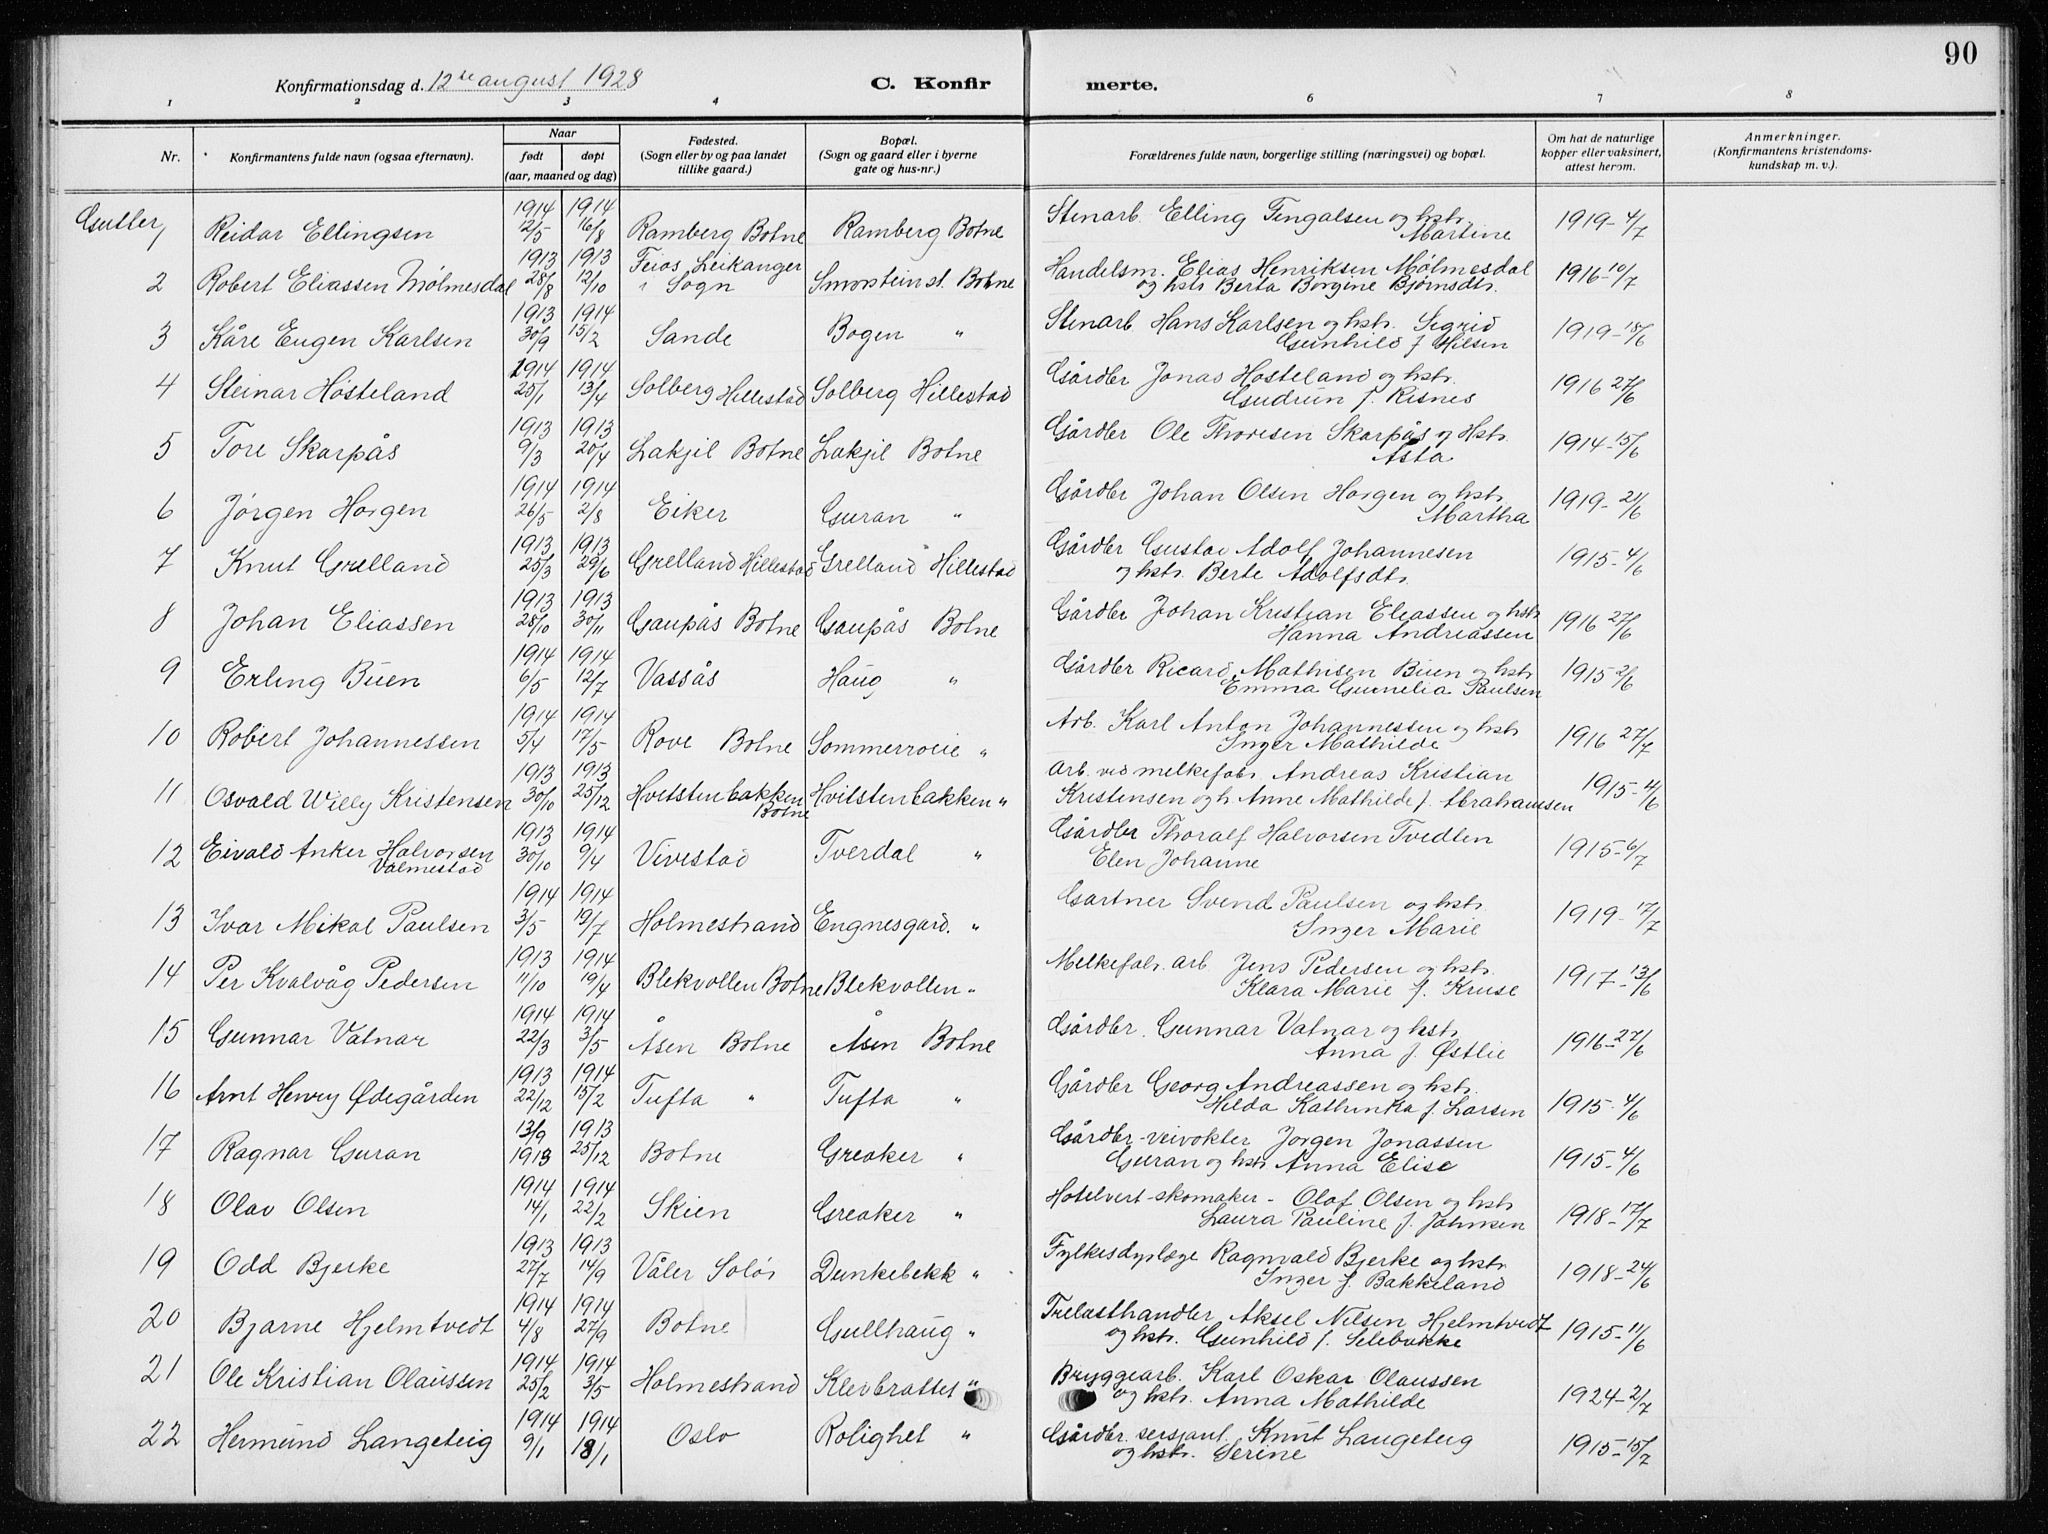 90
Konfirmationsdag d. 12te august 1928 C. Konfirmerte.
1 2 3 4 5 6 7 8
Nr. Konfirmantens fulde navn (ogsaa efternavn). Naar født døpt (aar, maaned og dag) Fødested. (Sogn eller by og paa landet tillike gaard.) Bopæl. (Sogn og gaard eller i byerne gate og hus-nr.) Forældrenes fulde navn, borgerlige stilling (næringsvei) og bopæl. Om hat de naturlige kopper eller vaksinert, attest herom. Anmerkninger. (Konfirmantens kristendoms-kundskap m. v.).
Gutter
1 Reidar Ellingsen 1914 12/5 1914 16/8 Ramberg Botne Ramberg Botne Stenarb. Elling Fingalsen og hstr. Martine 1919 4/7
2 Robert Eliassen Mølmesdal 1913 28/8 1913 12/10 Feios Leikanger i Sogn Smorstein st. Botne Handelsm. Elias Henriksen Mølmesdal og hstr Berta Borgine Bjørnsdtr. 1916 10/7
3 Kåre Eugen Karlsen 1913 30/9 1914 15/2 Sande Bogen " Stenarb. Hans Karlsen og hstr. Sigrid Gunhild f. Hilsen 1919 18/6
4 Steinar Høsteland 1914 25/1 1914 13/4 Solberg Hillestad Solberg Hillestad Gårdbr Jonas Hosteland og hstr. Gudrun f. Risnes 1916 27/6
5 Tore Skarpås 1913 9/3 1913 20/4 Lakjil Botne Lakjil Botne Gårdbr Ole Thoresen Skarpås og Hstr. Asta 1914 15/6
6 Jørgen Horgen 1914 26/5 1914 2/8 Eiker Guran " Gårdbr Johan Olsen Horgen og hstr Martha 1919 21/6
7 Knut Grelland 1913 25/3 1913 29/6 Grelland Hillestad Grelland Hillestad Gårdbr Gustav Adolf Johannesen og hstr. Berte Adolfsdtr. 1915 4/6
8 Johan Eliassen 1913 28/10 1913 30/11 Gaupås Botne Gaupås Botne Gårdbr Johan Kristian Eliassen og hstr Hanna Andreassen 1916 27/6
9 Erling Buen 1914 6/5 1914 12/7 Vassås Haug " Gårdbr Ricard Mathisen Buen og hstr Emma Gunelia Paulsen 1915 2/6
10 Robert Johannessen 1914 5/4 1914 17/5 Rove Botne Sommerroeie " Arb. Karl Anton Johannessen og hstr Inger Mathilde 1916 27/7
11 Osvald Willy Kristensen 1913 30/10 1913 25/12 Hvitstenbakken Botne Hvitstenbakken " Arb. ved melkefabr. Andreas Kristian Kristensen og h. Anne Mathilde f. Abrahamssen 1915 11/6
12 Eivald Anker Halvorsen Valmestad 1913 30/10 1914 9/4 Vivestad Tverdal " Gårdbr Thoralf Halvorsen Tvedten Elen Johanne 1915 6/7
13 Ivar Mikal Paulsen 1914 3/5 1914 19/7 Holmestrand Engnesgard. " Gartner Svend Paulsen og hstr. Inger Marie 1919 17/7
14 Per Kvalvåg Pedersen 1913 11/10 1914 19/4 Blekvollen Botne Blekvollen " Melkefabr. arb Jens Pedersen og hstr. Klara Marie f. Kruse 1917 13/6
15 Gunnar Vatnar 1914 22/3 1914 3/5 Åsen Botne Åsen Botne Gårdbr. Gunnar Vatnar og hstr. Anna f. Østlie 1916 27/6
16 Arnt Henry Ødegården 1913 22/12 1914 15/2 Tufta " Tufta " Gårdbr Georg Andreassen og hstr. Hilda Kathinka f. Larsen 1915 4/6
17 Ragnar Guran 13/9 1913 1913 25/12 Botne Greaker " Gårdbr-veivokter Jørgen Jonassen Guran og hstr Anna Elise 1915 4/6
18 Olav Olsen 1914 14/1 1914 22/2 Skien Greaker " Hotelvert-skomaker - Olaf Olsen og hstr Laura Pauline f. Johnsen 1918 17/7
19 Odd Bjerke 1913 27/7 1913 14/9 Våler Solør Dunkebekk " Fylkesdyrlæge Ragnvald Bjerke og hstr. Inger f. Bakkeland 1918 24/6
20 Bjarne Hjelmtvedt 1914 4/8 1914 27/9 Botne Gullhaug " Trelasthandler Aksel Nilsen Hjelmtvedt og hstr. Gunhild f. Selebakke 1915 11/6
21 Ole Kristian Olaussen 1914 25/2 1914 3/5 Holmestrand Klevbrattet " Bryggearb. Karl Oskar Olaussen og hstr. Anna Mathilde 1924 2/7
22 Hermund Langeteig 1914 9/1 1914 18/1 Oslo Rolighet " Gårdbr. sersjant. Knut Langeteig og hstr. Serine 1915 15/7